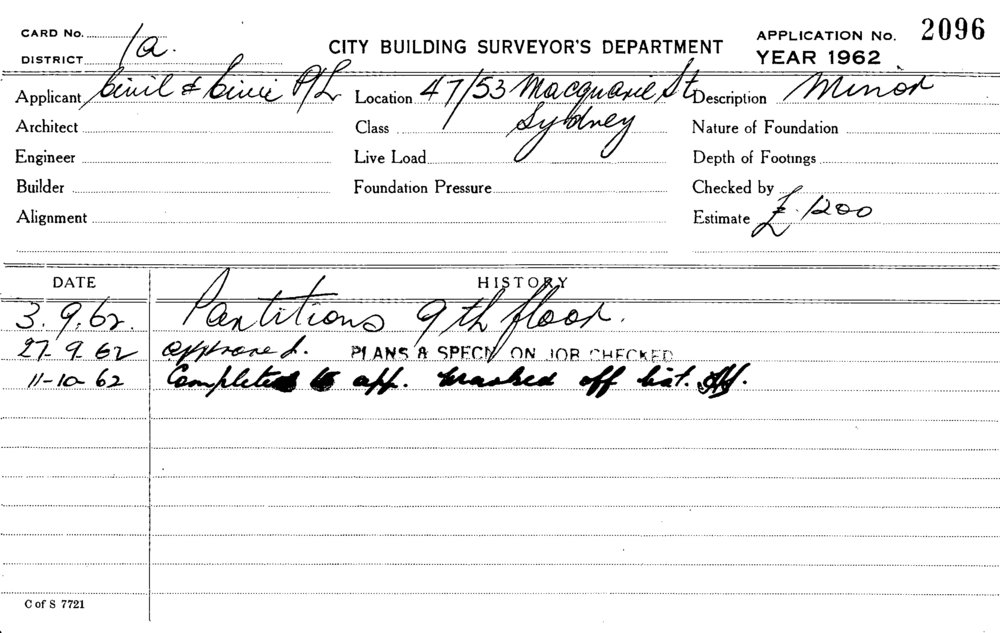 CARD No.
CITY BUILDING SURVEYOR'S DEPARTMENT
APPLICATION No. 2096
DISTRICT 1a.
YEAR 1962
Applicant Civil & Civic P/L Location 47/53 Macquarie St Description Minor
Architect Class Sydney Nature of Foundation
Engineer Live Load Depth of Footings
Builder Foundation Pressure Checked by
Alignment Estimate £1200
DATE HISTORY
3.9.62. Partitions 9th floor.
27-9-62 approved. PLANS & SPECN ON JOB CHECKED
11-10-62 Completed to app. marked off list.
C of S 7721